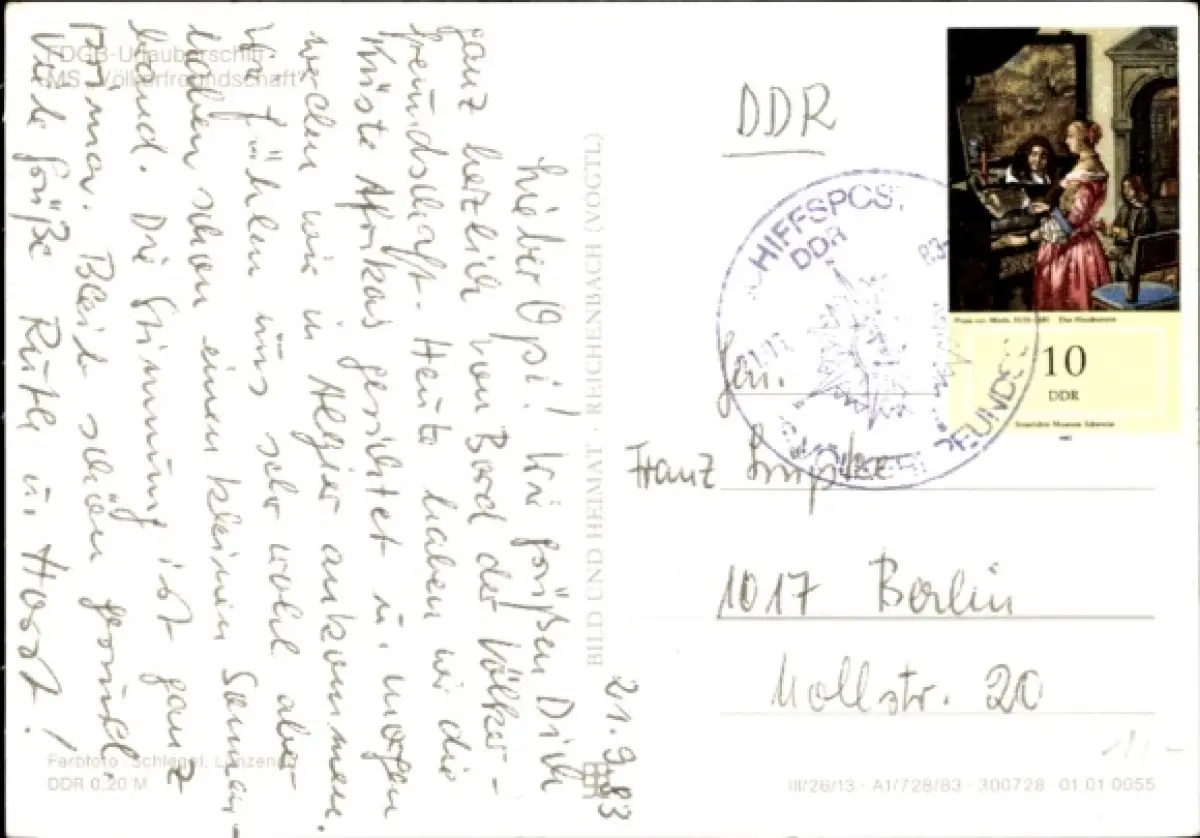 FDGB-Urlauberschiff
MS „Völkerfreundschaft"
21.9.83
Lieber Opi! Wir grüßen Dich
ganz herzlich von Bord der Völker-
freundschaft. Heute haben wir die
Küste Afrikas gesichtet u. morgen
werden wir in Algier ankommen.
Wir fühlen uns sehr wohl aber
haben schon einen kleinen Sonnen-
brand. Die Stimmung ist ganz
prima. Bleib schön gesund.
Viele Grüße Ruth u. Horst!
Farbfoto: Schlegel,
DDR 0,20 M
BILD UND HEIMAT · REICHENBACH (VOGTL)
DDR
SCHIFFSPOST
DDR
83-
Das Hauskonzert
10
DDR
Staatliches Museum Schwerin
Franz
1017 Berlin
Mollstr. 20
11,-
III/26/13 · A1/728/83 · 300728 01 01 0055